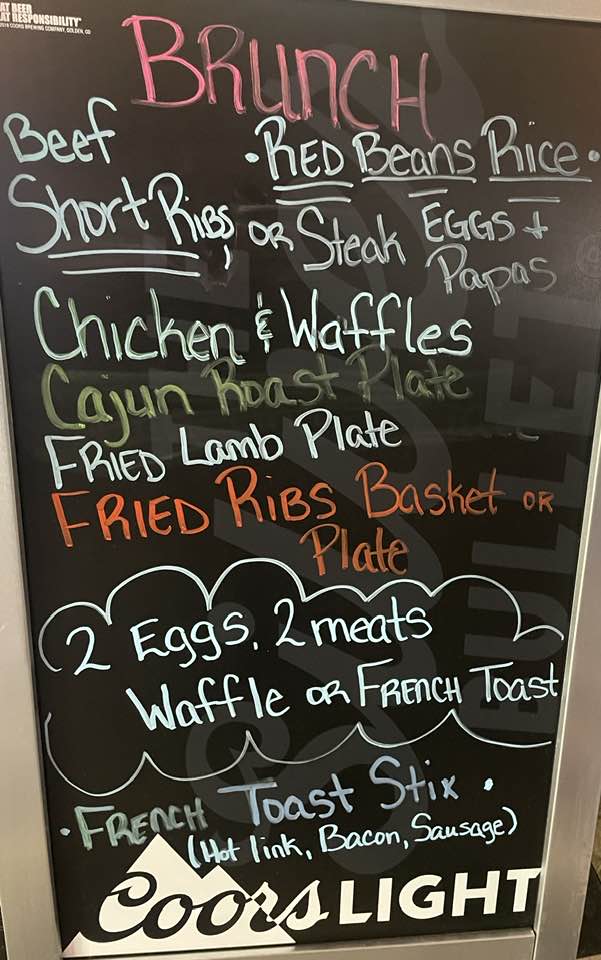 AT BEER
AT RESPONSIBILITY
COORS BREWING COMPANY, GOLDEN, CO
BRUNCH
Beef
Short Ribs
• RED Beans Rice •
or Steak EGGS +
Papas
Chicken & Waffles
Cajun Roast Plate
FRIED Lamb Plate
FRIED RIBS Basket OR
Plate
2 Eggs, 2 meats
Waffle OR FRENCH Toast
• FRENCH Toast Stix •
(Hot link, Bacon, Sausage)
Coors LIGHT
THE
SILVER
BULLET